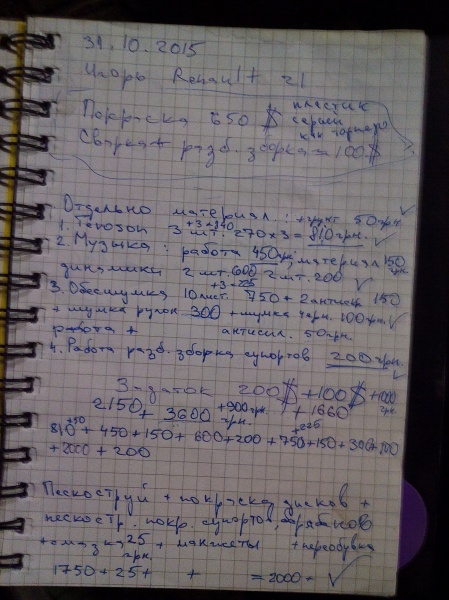 31.10.2015
Игорь Renault 21
Покраска 650 $ пластик серый как торпедо
Сварка + разб. зборка = 100$
Отдельно материал: + грунт 50грн.
+3=840
1. Терозон 3 шт. 270×3=810грн.
2. Музыка: работа 450грн, материал 150 грн.
динамики 2 шт. 600 2 шт. 200
+3=225
3. Обесшумка 10 лист. 750 + 2 антисил 150
+ шумка рулон 300 + шумка черн. 100грн.
работа + антисил. 50грн.
4. Работа разб. зборка супортов 200грн.
З-даток 200$ +100$ +1000 грн.
2150 + 3600 грн. +900грн. + 1660
+50 +225
810 + 450 + 150 + 600 + 200 + 750 + 150 + 300 + 100
+ 2000 + 200
Пескоструй + покраска дисков +
пескостр. покр. супортов,
+ смазка 25 грн. + манжеты + переобувка
1750 + 25 + + = 2000 +